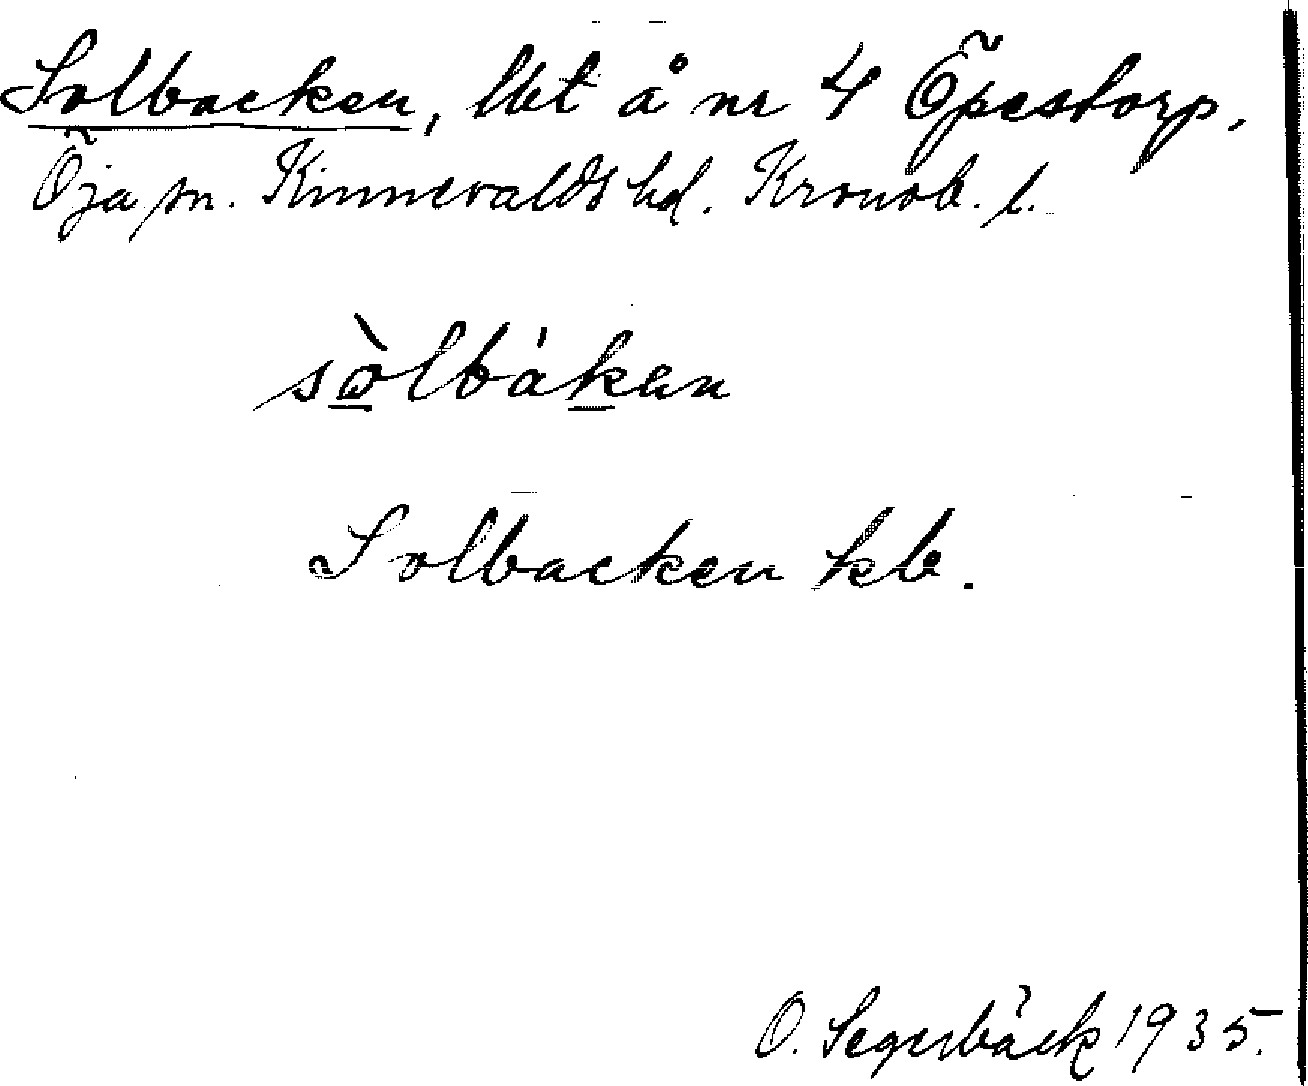 Solbacken, lbt å nr 4 Öpestorp,
Öja sn. Kinnevalds hd. Kronob. l.
sòlbáken
Solbacken kb.
O. Segerbäck 1935.